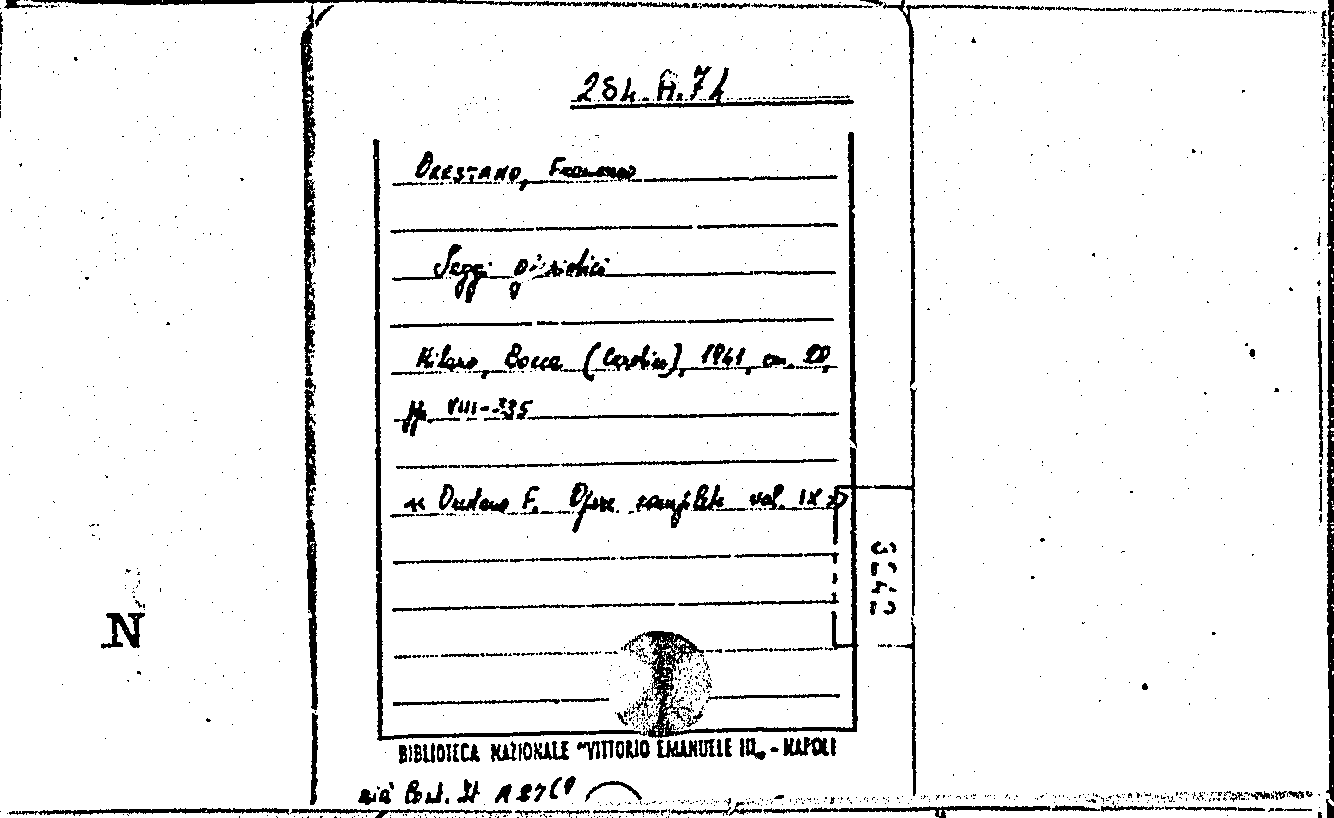 284. A. 74
ORESTANO, Francesco
Saggi giuridici
Milano, Bocca ( ), 1941, cm. 20,
pp. VIII-335
Orestano F. Opere complete vol. IX
BIBLIOTECA NAZIONALE "VITTORIO EMANUELE III„ - NAPOLI
già
N